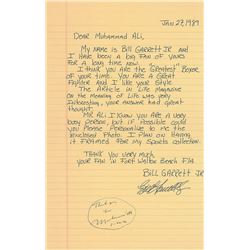 JAN 27, 1989
DEAR MUHAMMAD ALI,
MY NAME IS BILL GARRETT JR AND
I HAVE BEEN A BIG FAN OF YOURS
FOR A LONG TIME NOW.
I THINK YOU ARE THE "GREATEST" BOXER
OF YOUR TIME. YOU ARE A GREAT
FIGHTER AND I LIKE YOUR STYLE.
THE ARTICLE IN LIFE MAGAZINE
ON THE MEANING OF LIFE WAS VERY
INTERESTING, YOUR ANSWER HAD GREAT
THOUGHT.
MR. ALI I KNOW YOU ARE A VERY
BUSY PERSON, BUT IF POSSIBLE COULD
YOU PLEASE PERSONALIZE TO ME
THE ENCLOSED PHOTO. I PLAN ON HAVING
IT FRAMED FOR MY SPORTS COLLECTION.
THANK YOU VERY MUCH,
YOUR FAN IN FORT WALTON BEACH FLA.
BILL GARRETT JR